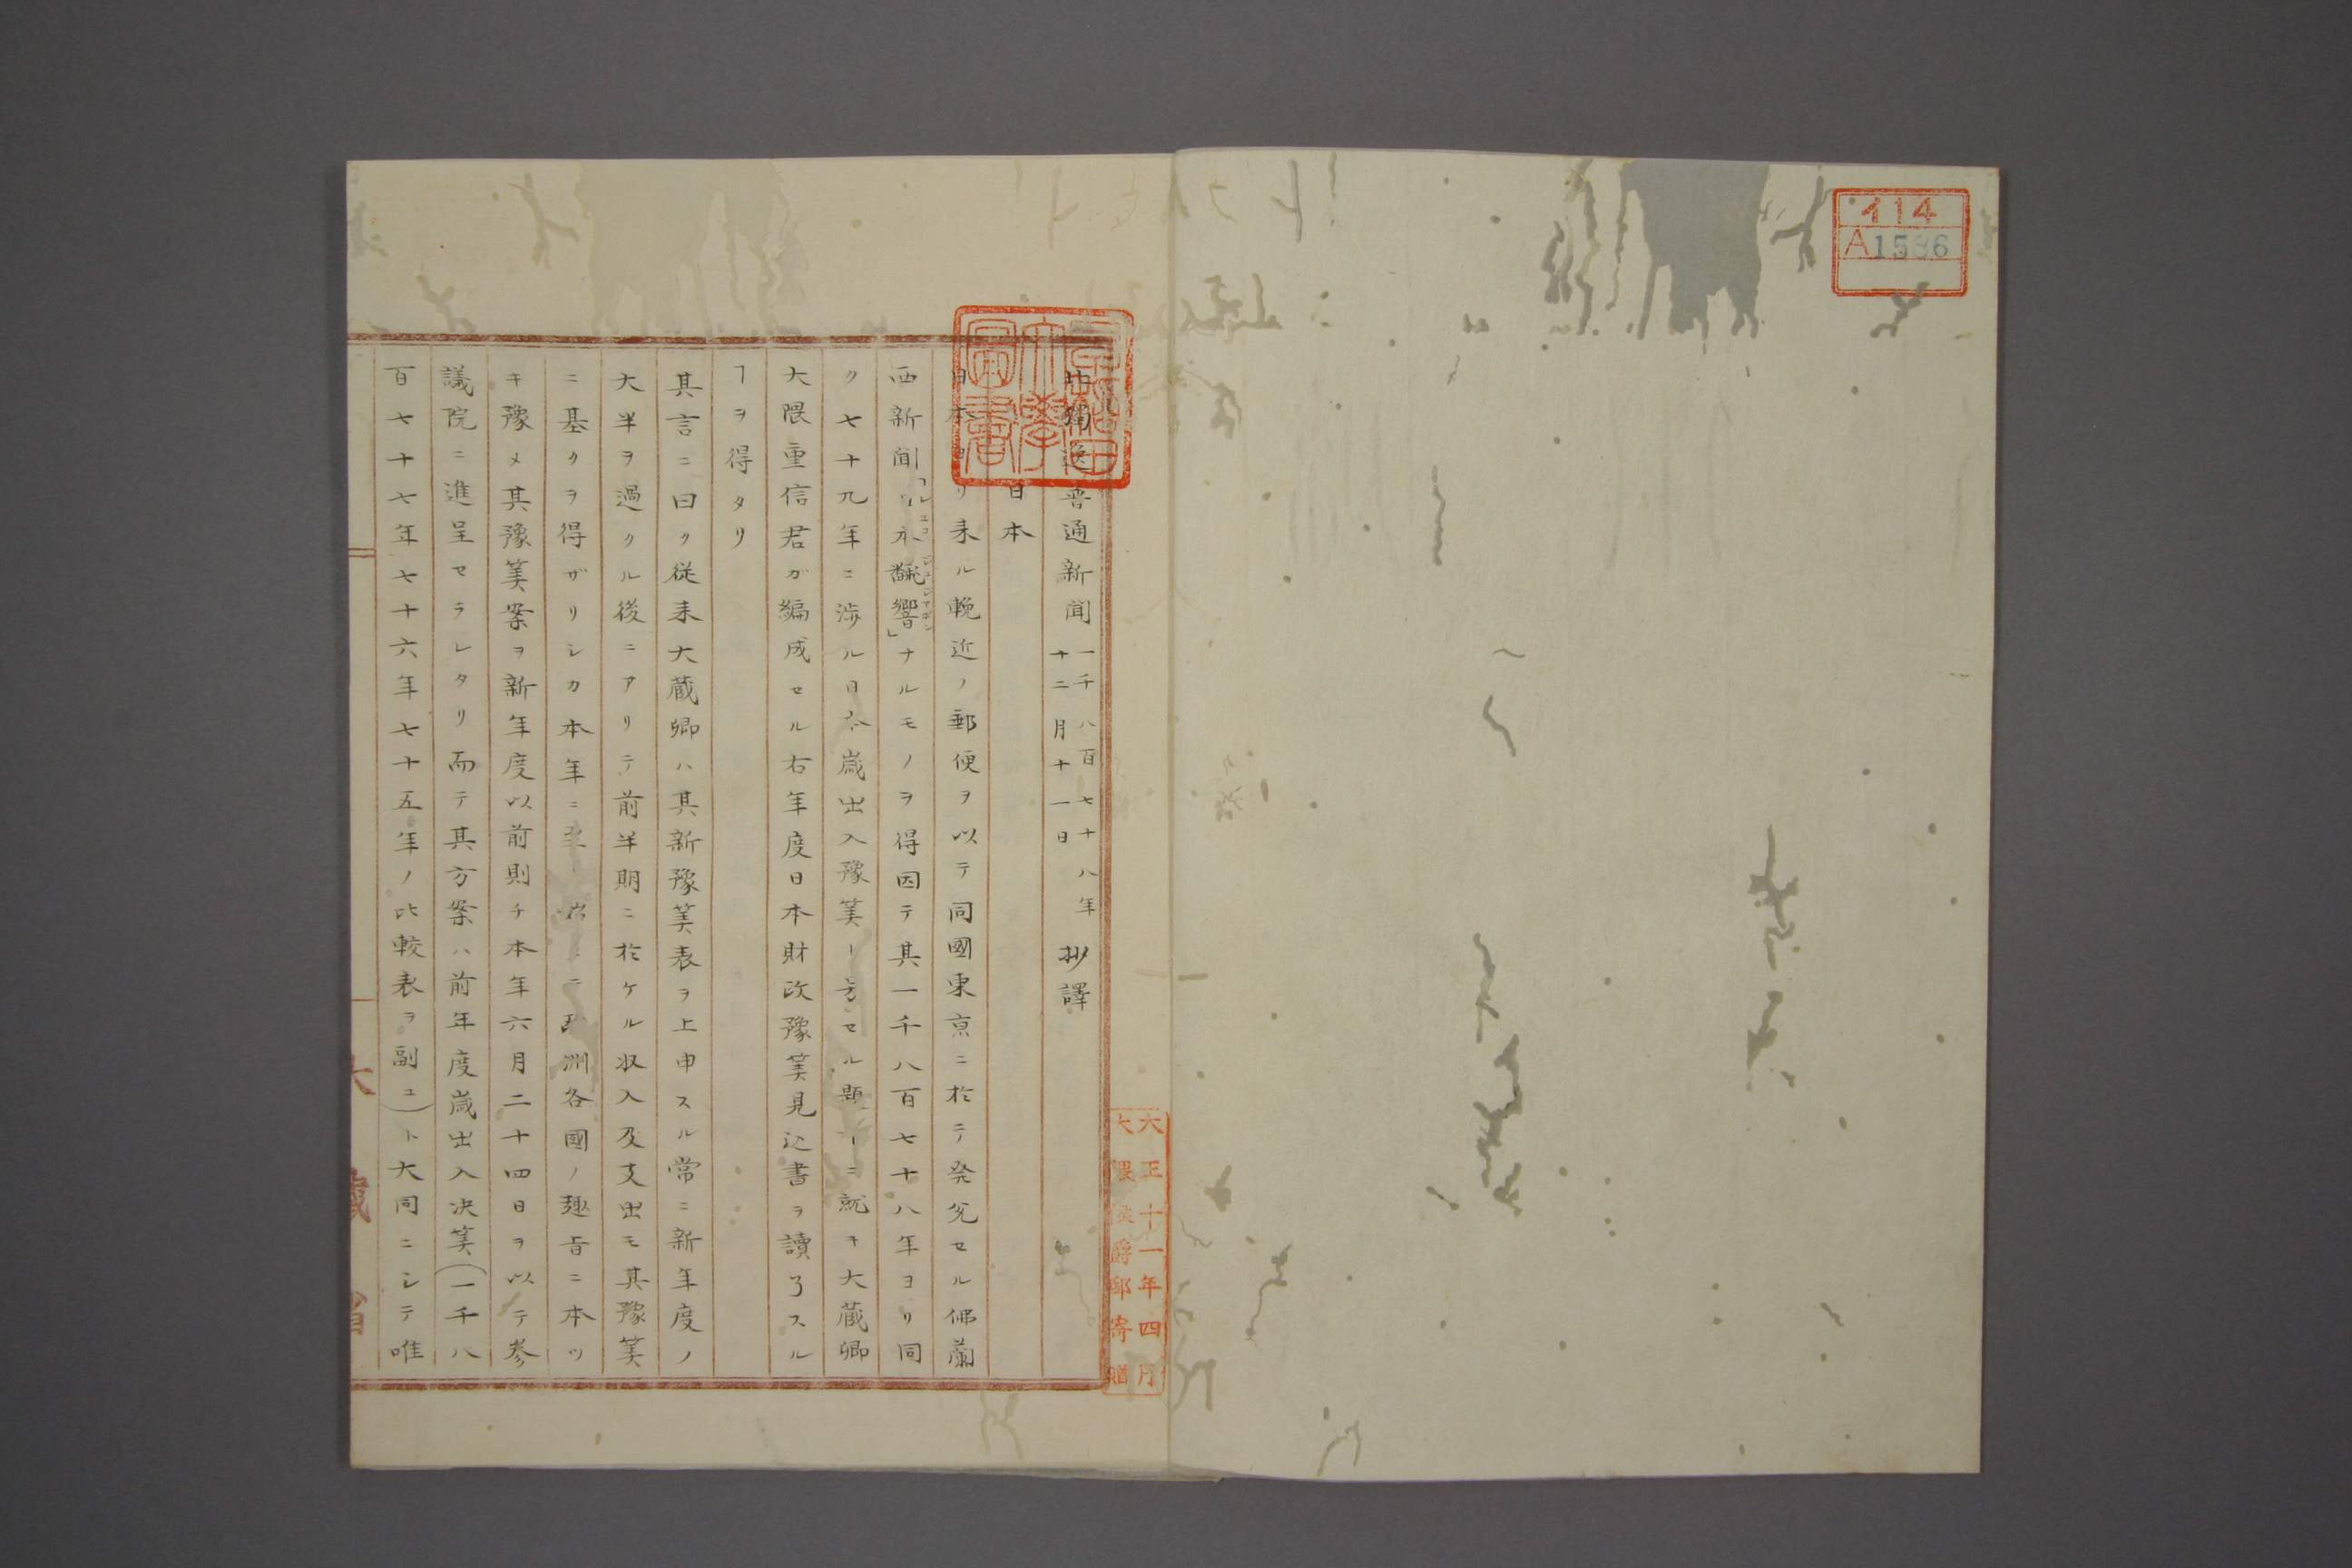 イ14
A1586
大正十一年四月
大隈侯爵邸寄贈
早稲田大學圖書
獨逸普通新聞 一千八百七十八年十二月十一日 抄譯
日本
日本ヨリ来ル輓近ノ郵便ヲ以テ同國東京ニ於テ発兌セル佛蘭
西新聞「日本飜響」ナルモノヲ得因テ其一千八百七十八年ヨリ同
ク七十九年ニ渉ル日本歳出入豫筭ノ方セル題ニ就キ大蔵卿
大隈重信君ガ編成セル右年度日本財政豫筭見込書ヲ讀了スル
ヿヲ得タリ
其言ニ曰ク従来大蔵卿ハ其新豫筭表ヲ上申スル常ニ新年度ノ
大半ヲ過クル後ニアリテ前半期ニ於ケル収入及支出モ其豫筭
ニ基クヲ得ザリシカ本年ニ至 テ 洲各國ノ趣旨ニ本ツ
キ豫メ其豫筭案ヲ新年度以前則チ本年六月二十四日ヲ以テ参
議院ニ進呈セラレタリ而テ其方案ハ前年度歳出入决筭(一千八
百七十七年七十六年七十五年ノ比較表ヲ副ユ)ト大同ニシテ唯
大藏省